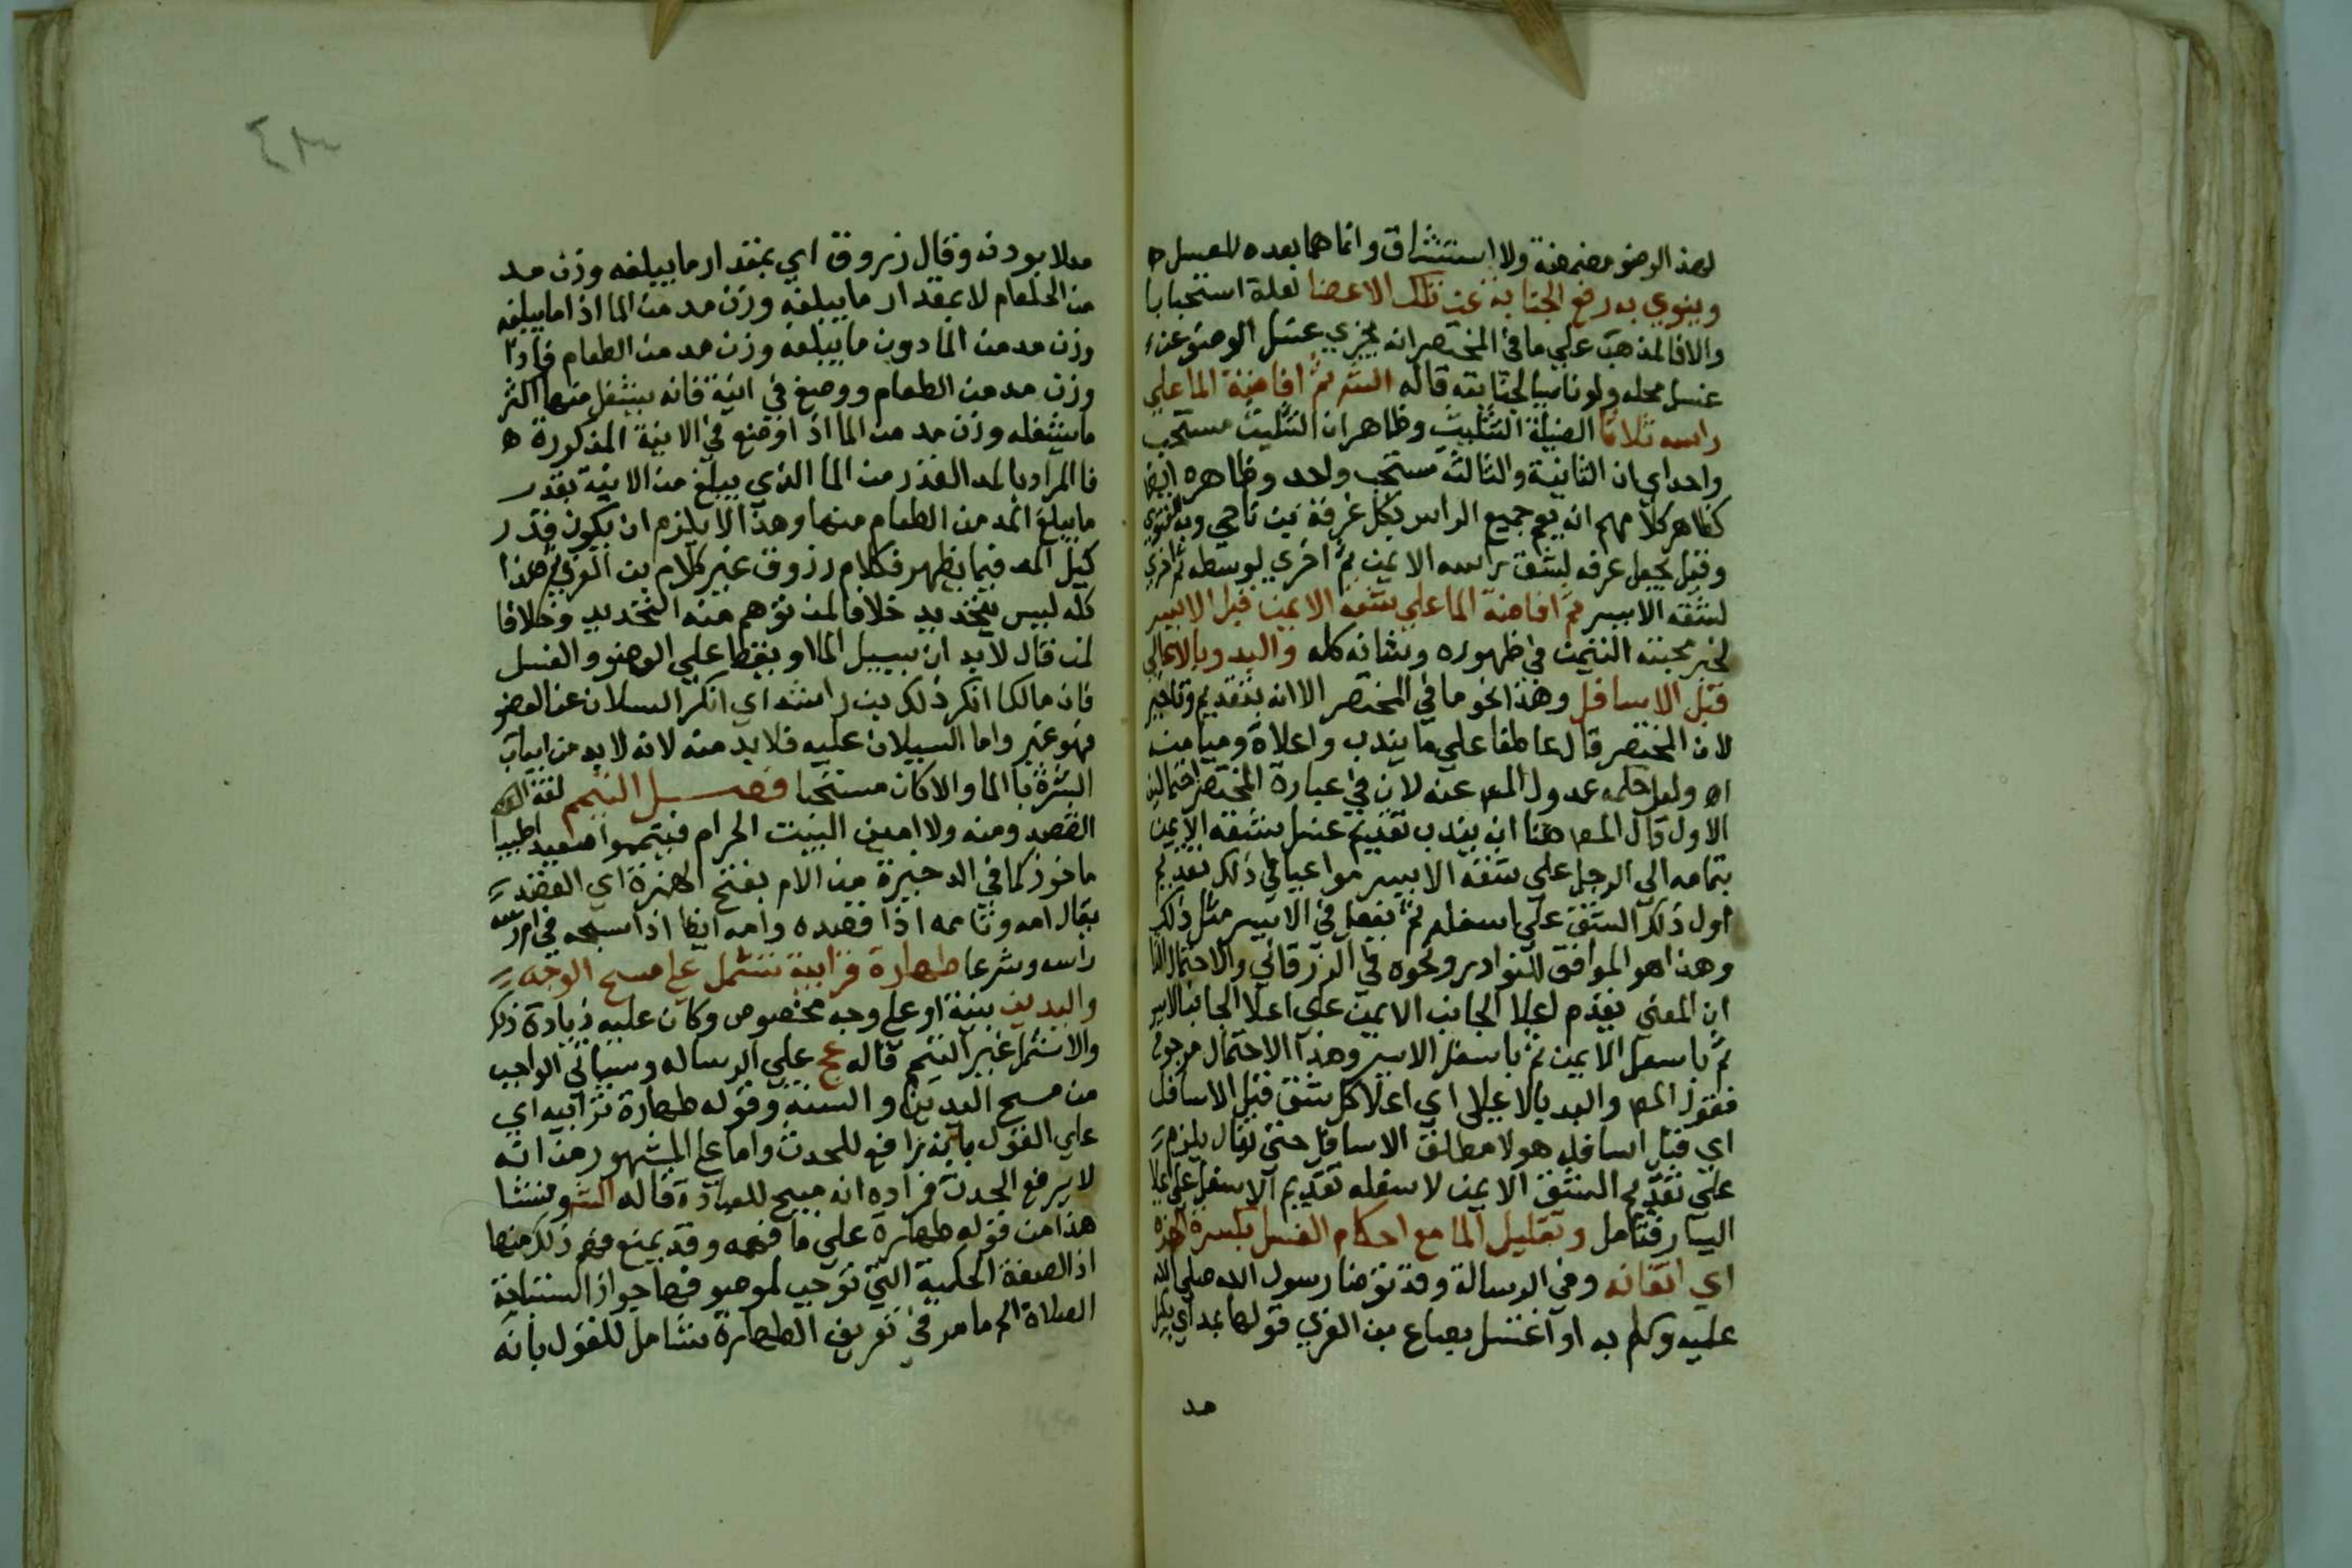 لهذا الوضو مضمضة ولا استنشاق وانما هما بعده للغسل ه
وينوي به رفع الجنابة عن تلك الاعضا لعله استحبابا
والا فالمذهب علي ما في المختصر انه يجزي غسل الوضو عن
غسل محله ولو ناسيا لجنابته قاله الشر ثم افاضة الما علي
راسه ثلاثا الفضيلة التثليث وظاهر ان التثليث مستحب
واحد اي ان الثانية والثالثة مستحب واحد وظاهره ايضا
كظاهر كلامهم انه يعم جميع الراس بكل غرفة بن ناجي وبه الفتوي
وقيل يجعل غرفه لشق راسه الايمن ثم اخري لوسطه ثم اخري
لشقه الايسر ثم افاضة الما علي شقه الايمن قبل الايسر
لخبر محبته التيمن في طهوره وشانه كله والبدو بالاعالي
قبل الاسافل وهذا نحو ما في المختصر الا انه بتقديم وتاخير
لان المختصر قال عاطفا علي ما يندب واعلاه وميامنه
اه ولعل حكمه عدول المص عنه لان في عبارة المختصر احتمالين
الاول قال المص هنا انه يندب تقديم غسل شقه الايمن
بتمامه الي الرجل علي شقه الايسر مواعيا في ذلك تقديم
اول ذلك الشق علي اسفله ثم يفعل في الايسر مثل ذلك
وهذا هو الموافق للنوادر ونحوه في الزرقاني والاحتمال الثا
ان المعني يقدم اعلا الجانب الايمن علي اعلا الجانب الايسر
ثم باسفل الايمن ثم باسفل الايسر وهذا الاحتمال مرجوح
فقول المص والبد بالاعالي اي اعلا كل شق قبل الاسافل
اي قبل اسافله هو لا مطلق الاسافل حتي يقال يلزم
علي تقديم الشق الايمن لاسفله تقديم الاسفل علي اعلا
اليسار فتامل وتقليل الما مع احكام الغسل بكسر الهمزة
اي اتقانه وفي الرسالة وقد توضا رسول الله صلي الله
عليه وكلم به او اغتسل بصاع بن العربي قولها بمد اي بكيل
مد
مدلا بوزنه وقال زروق اي بمقدار ما يبلغه وزن مد
من الطعام لا بمقدار ما يبلغه وزن مد من الما اذ اما يبلغه
وزن مد من الما دون ما يبلغه وزن مد من الطعام فاذا
وزن مد من الطعام ووضع في انية فانه يشغل منها اكثر
ما يشغله وزن مد من الما اذا وضع في الانية المذكورة ه
فالمراد بالمد القدر من الما الذي يبلغ من الانية بقدر
ما يبلغ المد من الطعام منها وهذا لا يلزم ان يكون قدر
كيل المد فيما يظهر فكلام رزوق غير كلام بن العربي ثم هذا
كله ليس بتحديد خلافا لمن توهم منه التحديد وخلافا
لمن قال لا بد ان يسيل الما او يقطر علي الوضو والغسل
فان مالكا انكر ذلك بن راشد اي انكر السيلان عن العضو
فهو غير واما السيلان عليه فلا بد منه لانه لا بد من ايعاب
البشرة بالما والا كان مستحبا فصل التيمم لغة
القصد ومنه ولا امين البيت الحرام فتيمموا صعيدا طيبا
ماخوذ كما في الدخيرة من الام بفتح الهمزة اي القصد
يقال امه وتاممه اذا قصده وامه ايضا اذا شجه في ام
راسه وشرعا طهارة ترابية تشتمل علي مسح الوجه
واليدين بنية او علي وجه مخصوص وكان عليه زيادة ذلك
والا شمل غير التيمم قاله عج علي الرساله وسياتي الواجب
من مسح اليدين والسنة وقوله طهارة ترابيه اي
علي القول بانه رافع للحدث واما علي المشهور من انه
لا يرفع الحدث فمراده انه مبيح للعبادة قاله الشر ومنشا
هذا من قوله طهارة علي ما فهمه وقد يمنع فهم ذلك منها
اذ الصفة الحكمية التي توجب لموصوفها جواز استباحة
الصلاة الخ ما مر في تعريف الطهارة شامل للقول بانه